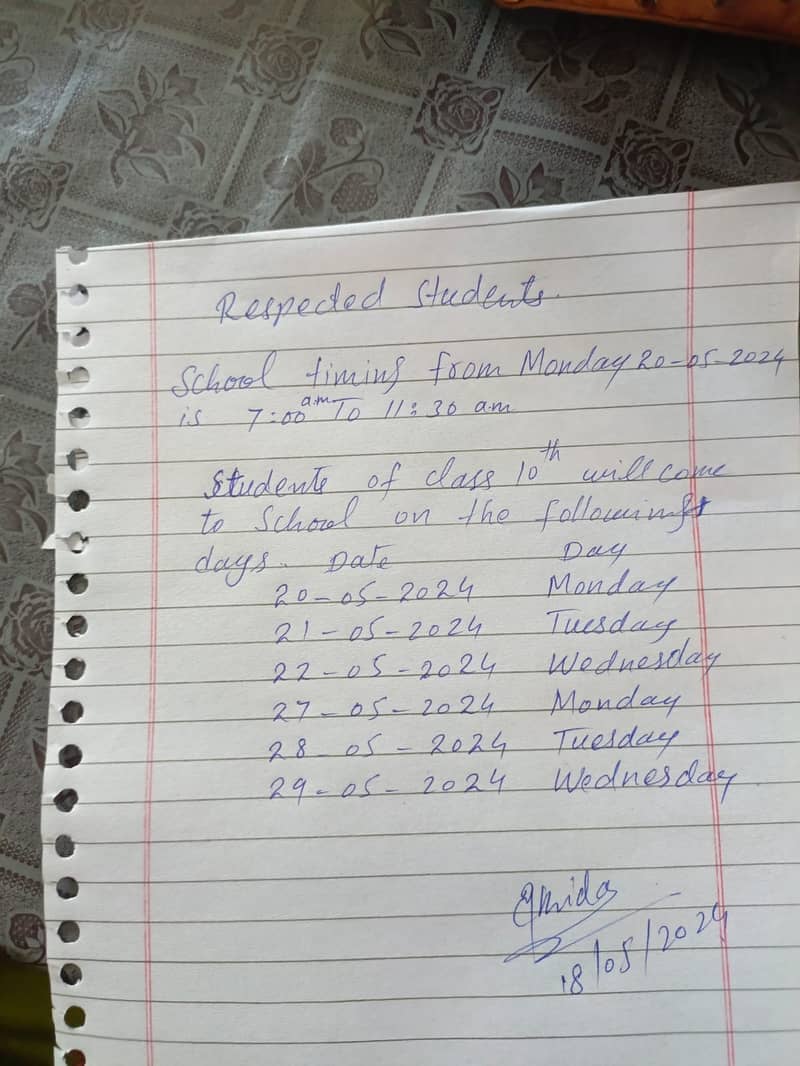 Respected Students.
School timing from Monday 20-05-2024
is 7:00 am To 11:30 am
Students of class 10th will come
to School on the following
days. Date Day
20-05-2024 Monday
21-05-2024 Tuesday
22-05-2024 Wednesday
27-05-2024 Monday
28-05-2024 Tuesday
29-05-2024 Wednesday
18/05/2024